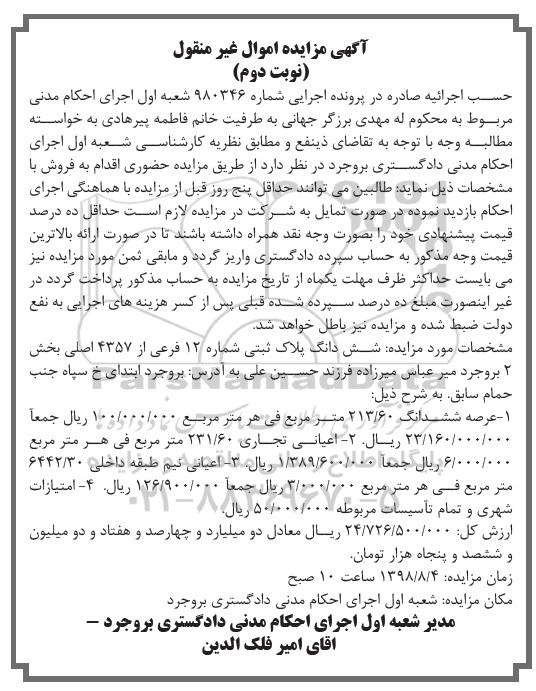 آگهی مزایده اموال غیر منقول
(نوبت دوم)
حسب اجرائیه صادره در پرونده اجرایی شماره ۹۸۰۳۴۶ شعبه اول اجرای احکام مدنی
مربوط به محکوم له مهدی برزگر جهانی به طرفیت خانم فاطمه پیرهادی به خواسته
مطالبه وجه با توجه به تقاضای ذینفع و مطابق نظریه کارشناسی شعبه اول اجرای
احکام مدنی دادگستری بروجرد در نظر دارد از طریق مزایده حضوری اقدام به فروش با
مشخصات ذیل نماید: طالبین می توانند حداقل پنج روز قبل از مزایده با هماهنگی اجرای
احکام بازدید نموده در صورت تمایل به شرکت در مزایده لازم است حداقل ده درصد
قیمت پیشنهادی خود را بصورت وجه نقد همراه داشته باشند تا در صورت ارائه بالاترین
قیمت وجه مذکور به حساب سپرده دادگستری واریز گردد و مابقی ثمن مورد مزایده نیز
می بایست حداکثر ظرف مهلت یکماه از تاریخ مزایده به حساب مذکور پرداخت گردد در
غیر اینصورت مبلغ ده درصد سپرده شده قبلی پس از کسر هزینه های اجرایی به نفع
دولت ضبط شده و مزایده نیز باطل خواهد شد.
مشخصات مورد مزایده: شش دانگ پلاک ثبتی شماره ۱۲ فرعی از ۴۳۵۷ اصلی بخش
۲ بروجرد میر عباس میرزاده فرزند حسین علی به آدرس: بروجرد ابتدای خ سپاه جنب
حمام سابق. به شرح ذیل:
۱-عرصه ششدانگ ۲۱۳/۶۰ متر مربع فی هر متر مربع ۱۰۰/۰۰۰/۰۰۰ ریال جمعاً
۲۳/۱۶۰/۰۰۰/۰۰۰ ریال. ۲- اعیانی تجاری ۲۳۱/۶۰ متر مربع فی هر متر مربع
۶/۰۰۰/۰۰۰ ریال جمعاً ۱/۳۸۹/۶۰۰/۰۰۰ ریال. ۳- اعیانی نیم طبقه داخلی ۶۴۴۲/۳۰
متر مربع فی هر متر مربع ۳/۰۰۰/۰۰۰ ریال جمعاً ۱۲۶/۹۰۰/۰۰۰ ریال. ۴- امتیازات
شهری و تمام تأسیسات مربوطه ۵۰/۰۰۰/۰۰۰ ریال.
ارزش کل: ۲۴/۷۲۶/۵۰۰/۰۰۰ ریال معادل دو میلیارد و چهارصد و هفتاد و دو میلیون
و ششصد و پنجاه هزار تومان.
زمان مزایده: ۱۳۹۸/۸/۴ ساعت ۱۰ صبح
مکان مزایده: شعبه اول اجرای احکام مدنی دادگستری بروجرد
مدیر شعبه اول اجرای احکام مدنی دادگستری بروجرد –
اقای امیر فلک الدین
ParsNamadData
۰۲۱-۸۸۳۴۹۶۷۰-۵